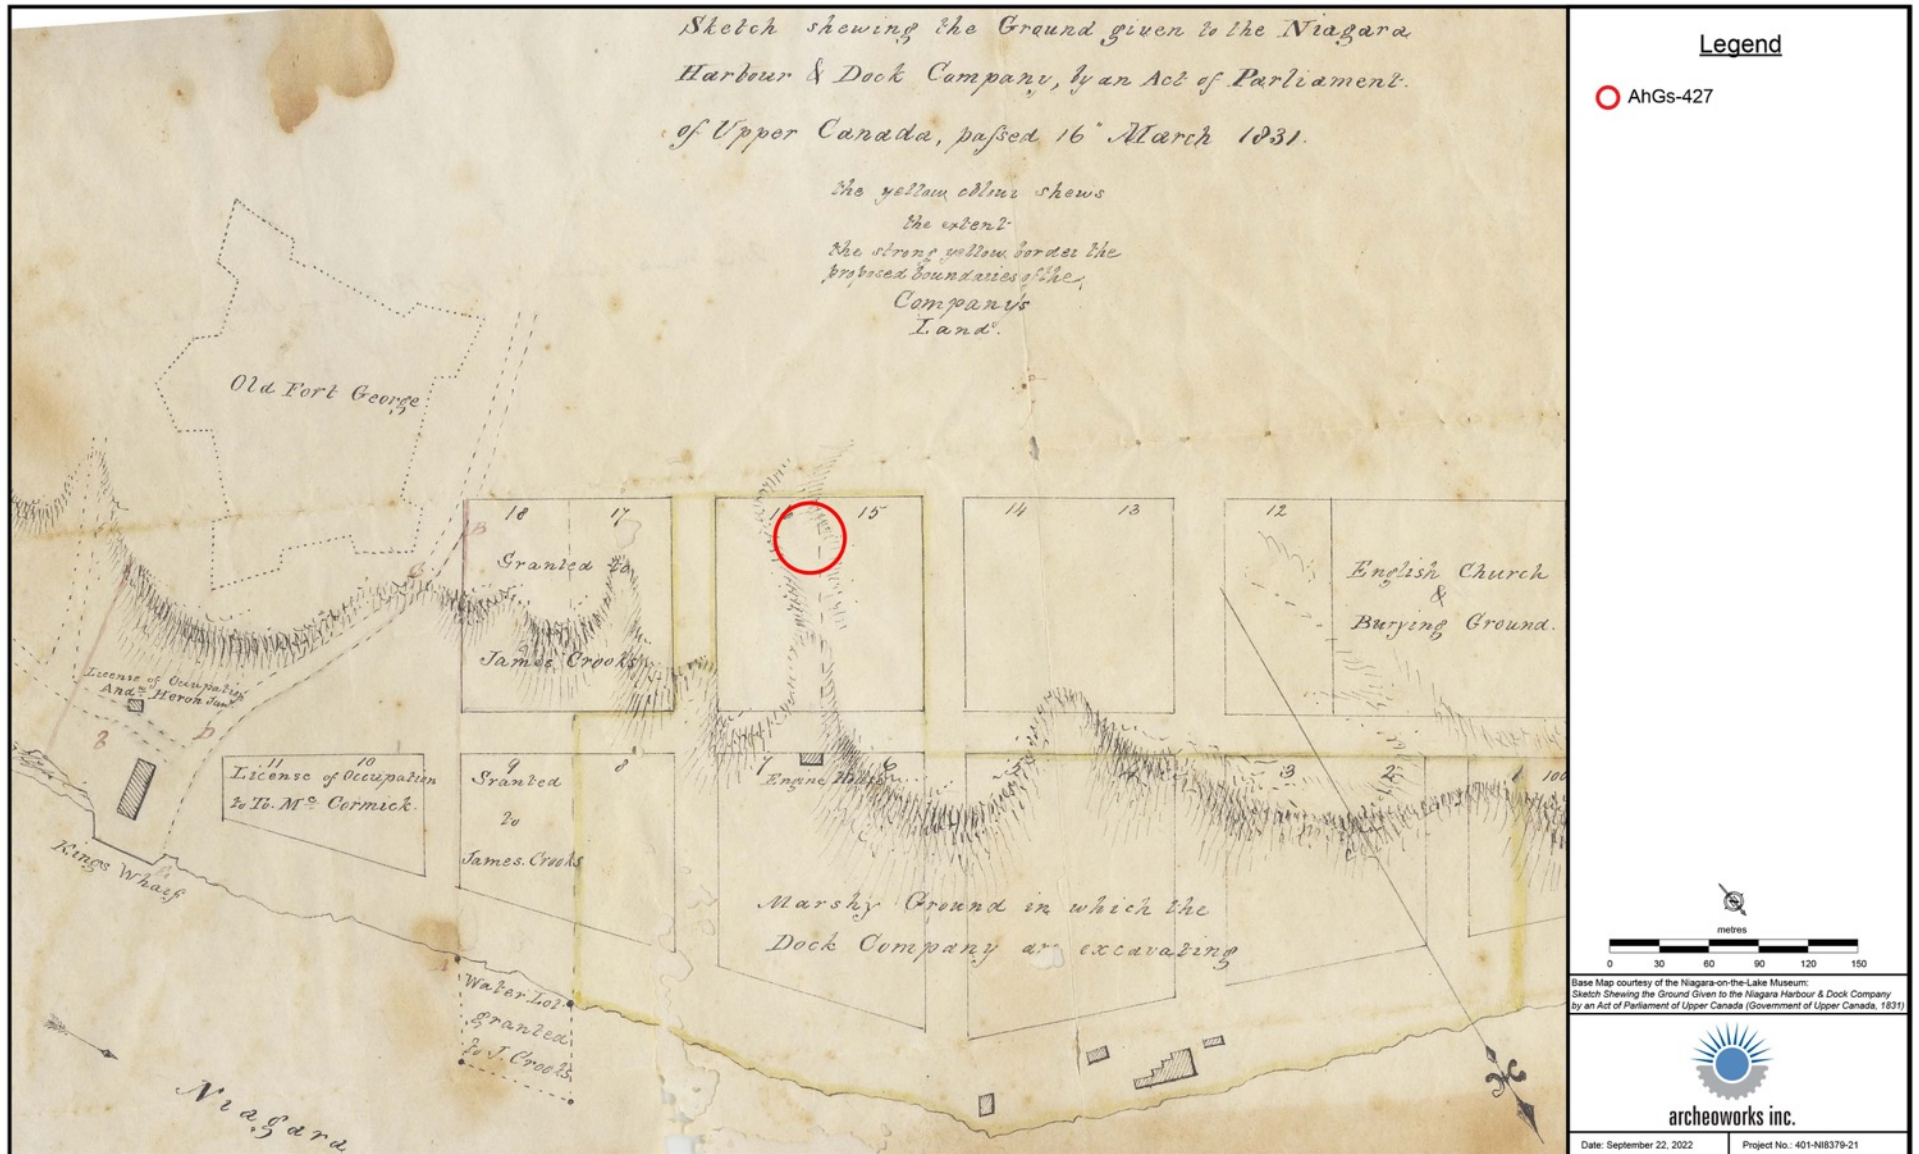 Sketch shewing the Ground given to the Niagara
Harbour & Dock Company, by an Act of Parliament
of Upper Canada, paſsed 16" March 1831.
the yellow colour shews
the extent
the strong yellow border the
proposed boundaries of the
Company's
Land.
Old Fort George
18 17
Granted to
James Crooks
16 15
14 13
12
English Church
&
Burying Ground.
License of Occupation
And.w Heron Jun.r
B
B
D
11 10
License of Occupation
to To. Mc Cormick.
9
Granted
to
James. Crooks
8
7 6
Engine House
5 4 3 2 1 100
Kings Wharf
Marshy Ground in which the
Dock Company are excavating
Water Lot
granted
to J. Crooks
Niagara
Legend
AhGs-427
metres
0 30 60 90 120 150
Base Map courtesy of the Niagara-on-the-Lake Museum:
Sketch Shewing the Ground Given to the Niagara Harbour & Dock Company
by an Act of Parliament of Upper Canada (Government of Upper Canada, 1831)
archeoworks inc.
Date: September 22, 2022
Project No.: 401-NI8379-21